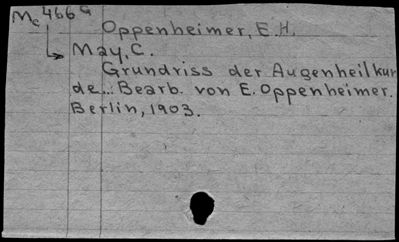 Mc 466 G
Oppenheimer, E.H.
May, C.
Grundriss der Augenheilkun
de... Bearb. von E. Oppenheimer.
Berlin, 1903.